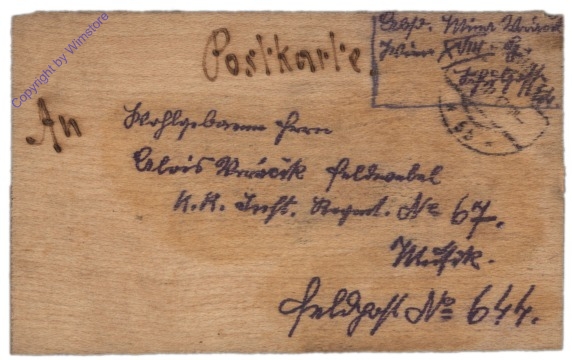 Copyright by Wimstore
Postkarte.
Absd. Minna
Wien XVIII.
An
Wohlgeboren Herrn
Alois Feldwebel
K. K. Inft. Regmt. № 67.
Musik.
Feldpost № 644.